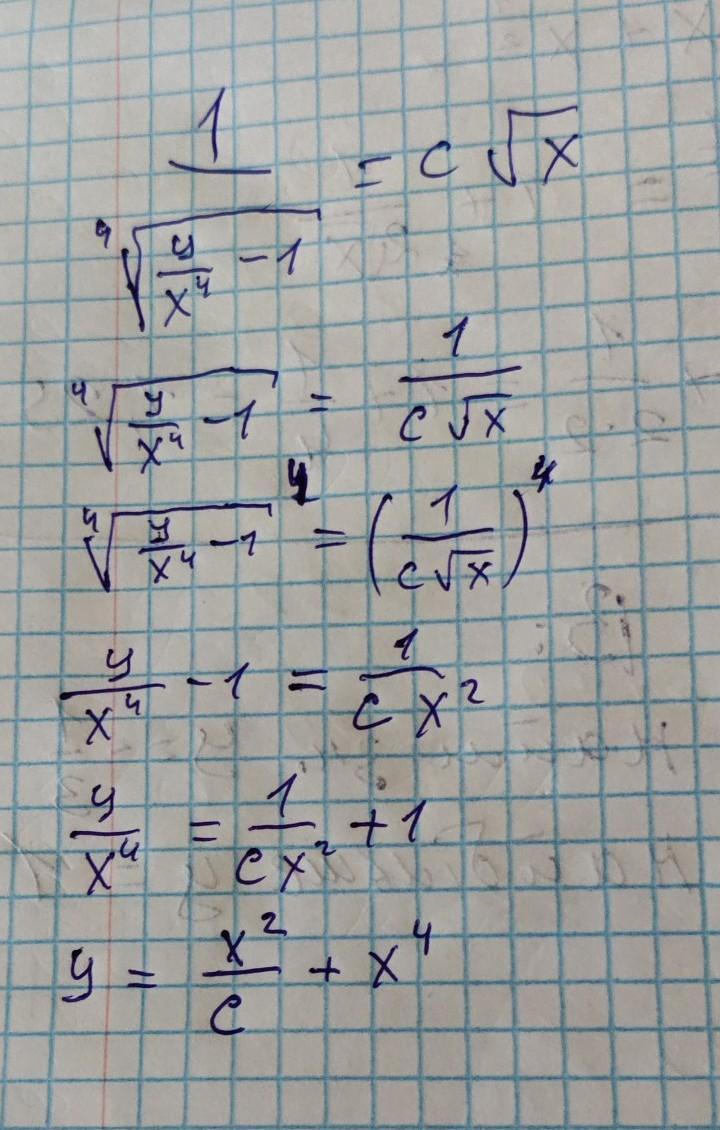 1/∜(y/x⁴ - 1) = c√x
∜(y/x⁴ - 1) = 1/(c√x)
∜(y/x⁴ - 1)⁴ = (1/(c√x))⁴
y/x⁴ - 1 = 1/(c x²)
y/x⁴ = 1/(c x²) + 1
y = x²/c + x⁴